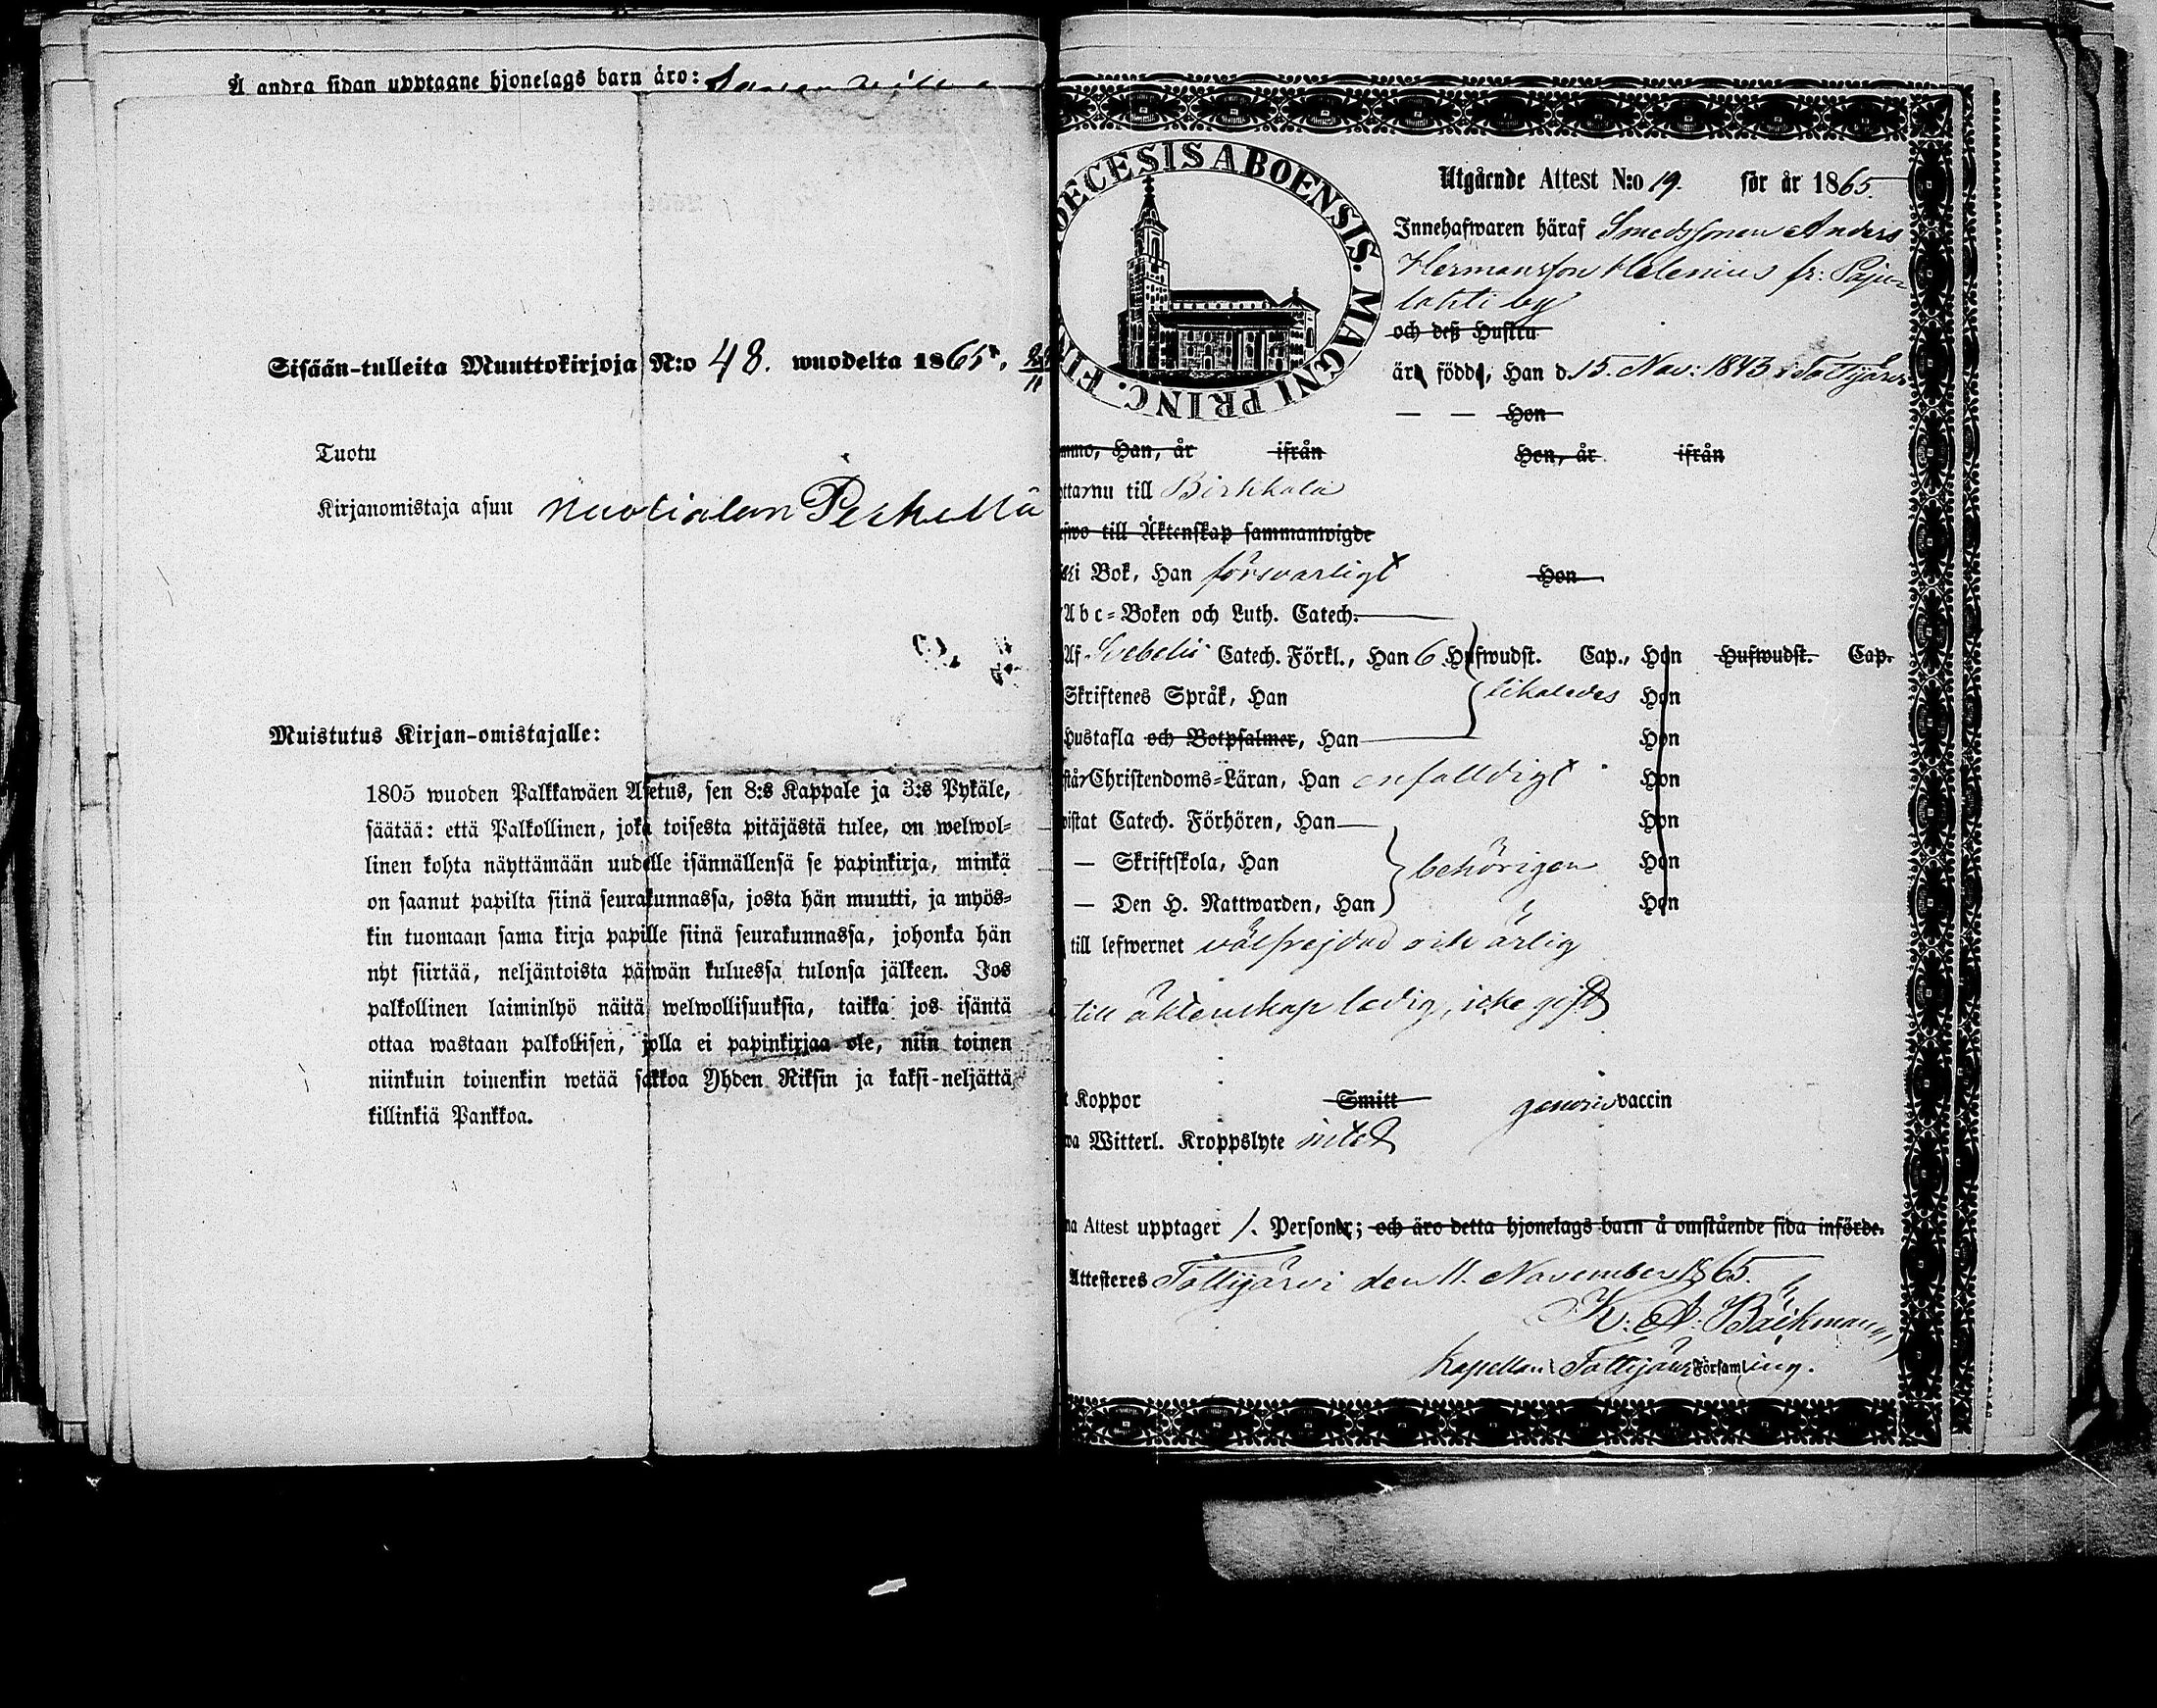 Å andra sidan upptagne hjonelags barn äro:
Sisään-tulleita Muuttokirjoja N:o 48. wuodelta 1865.
Tuotu
Kirjanomistaja asuu Nuotialan Perkullä
Muistutus Kirjan-omistajalle:
1805 wuoden Palkkawäen Asetus, sen 8:s Kappale ja 3:s Pykäle,
säätää: että Palkollinen, joka toisesta pitäjästä tulee, on welwol=
linen kohta näyttämään uudelle isännällensä se papinkirja, minkä
on saanut papilta siinä seurakunnassa, josta hän muutti, ja myös=
kin tuomaan sama kirja papille siinä seurakunnassa, johonka hän
nyt siirtää, neljäntoista päiwän kuluessa tulonsa jälkeen. Jos
palkollinen laiminlyö näitä welwollisuuksia, taikka jos isäntä
ottaa wastaan palkollisen, jolla ei papinkirjaa ole, niin toinen
niinkuin toinenkin wetää sakkoa Yhden Riksin ja kaksi-neljättä
killinkiä Pankkoa.
DECESIS ABOENSIS. MAGNI PRINC. FIN
Utgående Attest N:o 19. för år 1865.
Innehafwaren häraf Smedssonen Anders
Hermansson Helenius fr: Paju=
lahti by
och deß Hustru
är född, Han d. 15. Nov: 1843 i Tottijärvi
— — Hon
mmo, Han, år ifrån Hon, år ifrån
ttar nu till Birkkala
fwo till Äktenskap sammanwigde
i Bok, Han försvarligt Hon
Abc=Boken och Luth. Catech.
Af Svebelii Catech. Förkl., Han 6 Hufwudst. Cap., Hon Hufwudst. Cap.
Skriftenes Språk, Han likaledes Hon
Hustafla och Botpsalmer, Han Hon
står Christendoms=Läran, Han enfalldigt Hon
wistat Catech. Förhören, Han Hon
— Skriftskola, Han behörigen Hon
— Den H. Nattwarden, Han Hon
till lefwernet välfrejdad och ärlig
till äktenskap ledig, icke gift
t Koppor Smitt genuin vaccin
wa Witterl. Kroppslyte intet
na Attest upptager 1. Person; och äro detta hjonelags barn å omstående sida införde.
Attesteres Tottijärvi den 11. November 1865.
K. A. Bäckman
Kapellan i Tottijärvi Församling.